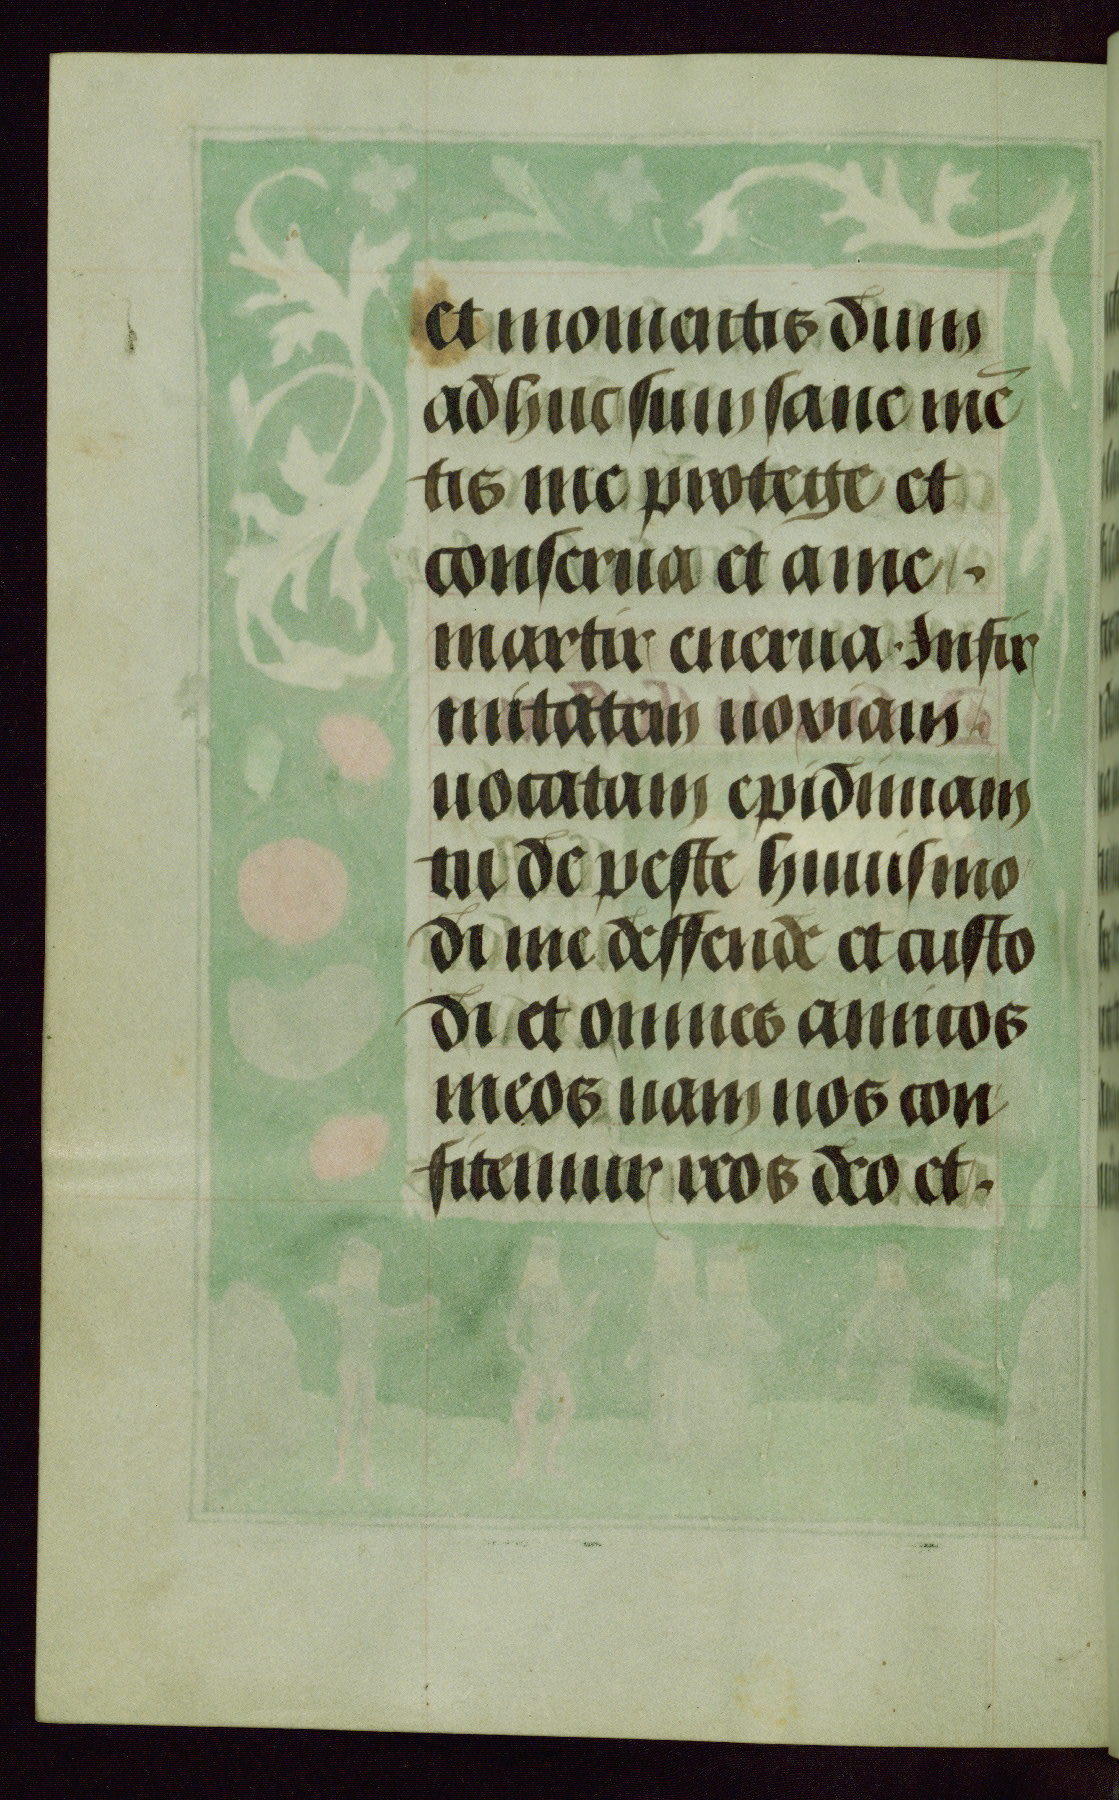 et momentis dum
adhuc sum sane mē
tis me protege et
conserua et a me
martir enerua. Infir
mitatem noxiam
uocatam epidimiam
tu de peste huiusmo
di me deffende et custo
di et omnes amicos
meos nam nos con
fitemur reos deo et